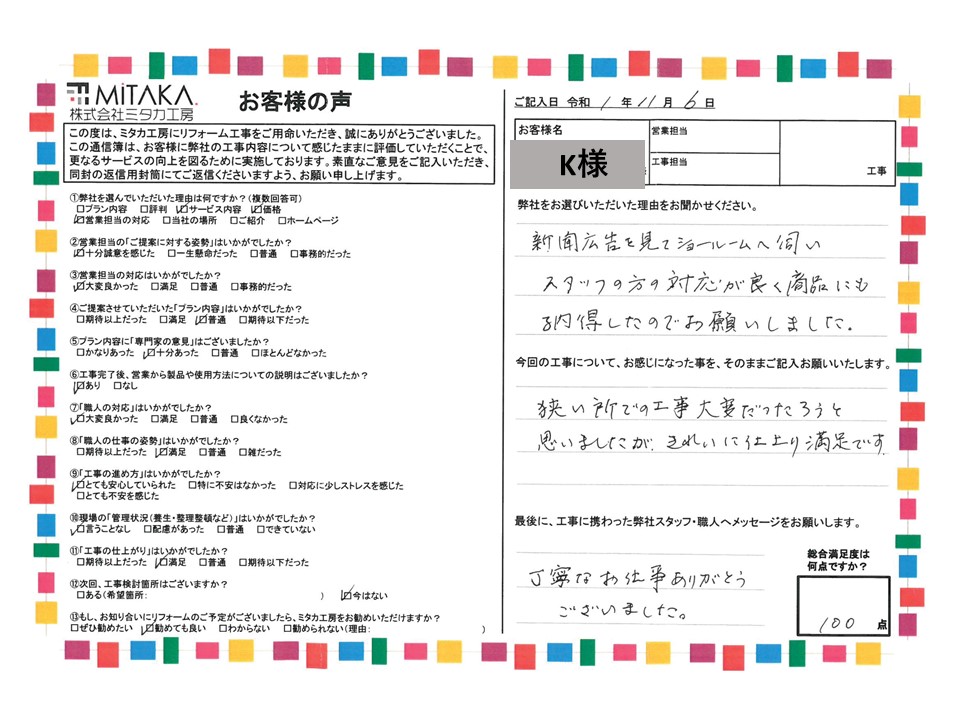 MiTAKA.
株式会社ミタカ工房
お客様の声
この度は、ミタカ工房にリフォーム工事をご用命いただき、誠にありがとうございました。
この通信簿は、お客様に弊社の工事内容について感じたままに評価していただくことで、
更なるサービスの向上を図るために実施しております。素直なご意見をご記入いただき、
同封の返信用封筒にてご返信くださいますよう、お願い申し上げます。
①弊社を選んでいただいた理由は何ですか?(複数回答可)
□プラン内容 □評判 ☑サービス内容 ☑価格
☑営業担当の対応 □当社の場所 □ご紹介 □ホームページ
②営業担当の「ご提案に対する姿勢」はいかがでしたか?
☑十分誠意を感じた □一生懸命だった □普通 □事務的だった
③営業担当の対応はいかがでしたか?
☑大変良かった □満足 □普通 □事務的だった
④ご提案させていただいた「プラン内容」はいかがでしたか?
□期待以上だった □満足 ☑普通 □期待以下だった
⑤プラン内容に「専門家の意見」はございましたか?
□かなりあった ☑十分あった □普通 □ほとんどなかった
⑥工事完了後、営業から製品や使用方法についての説明はございましたか?
☑あり □なし
⑦「職人の対応」はいかがでしたか?
☑大変良かった □満足 □普通 □良くなかった
⑧「職人の仕事の姿勢」はいかがでしたか?
□期待以上だった ☑満足 □普通 □雑だった
⑨「工事の進め方」はいかがでしたか?
☑とても安心していられた □特に不安はなかった □対応に少しストレスを感じた
□とても不安を感じた
⑩現場の「管理状況(養生・整理整頓など)」はいかがでしたか?
☑言うことなし □配慮があった □普通 □できていない
⑪「工事の仕上がり」はいかがでしたか?
□期待以上だった ☑満足 □普通 □期待以下だった
⑫次回、工事検討箇所はございますか?
□ある(希望箇所: ) ☑今はない
⑬もし、お知り合いにリフォームのご予定がございましたら、ミタカ工房をお勧めいただけますか?
□ぜひ勧めたい ☑勧めても良い □わからない □勧められない(理由: )
ご記入日 令和 1 年 11 月 6 日
お客様名
K様
営業担当
工事担当
工事
弊社をお選びいただいた理由をお聞かせください。
新聞広告を見てショールームへ伺い
スタッフの方の対応が良く商品にも
納得したのでお願いしました。
今回の工事について、お感じになった事を、そのままご記入お願いいたします。
狭い所での工事大変だったろうと
思いましたが、きれいに仕上り満足です。
最後に、工事に携わった弊社スタッフ・職人へメッセージをお願いします。
丁寧なお仕事ありがとう
ございました。
総合満足度は
何点ですか?
100 点